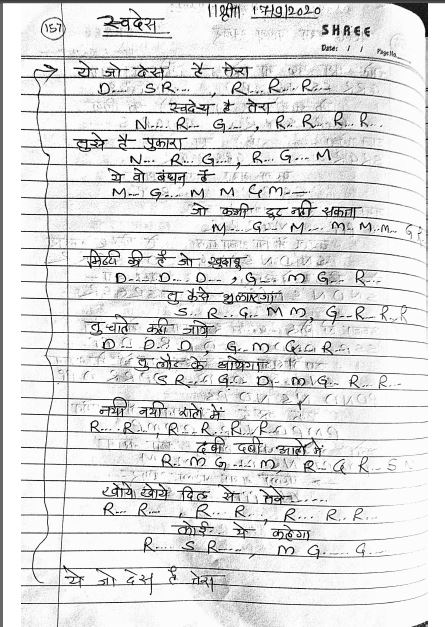 157
स्वदेस
॥श्री॥ 17/9/2020
SHREE
Date: / / Page No.
ये जो देस है तेरा
D... S R...., R... R.. R...
स्वदेस है तेरा
N... R... G..., R.. R. R. R.
तुझे है पुकारा
N... R.. G..., R.. G... M
ये वो बंधन है
M... G... M M G M...
जो कभी टूट नही सकता
M... G... M... M.. M.. G R
मिट्टी की है जो खुशबू
D... D... D..., G... M G.. R...
तु कैसे भुलाएगा
S.. R.. G.. M M, G.. R.. R..R
तु चाहे कही जाये
D... D.. D, G... M G... R...
तु लौट के आयेगा
S R... G.. D.. M G.. R.. R...
नयी नयी राहो में
R... R..., R... R.. R.. R...
दबी दबी आहो में
R... M G.... M, R... G R.. S
खोये खोये दिल से तेरे
R... R..., R... R.., R... R.. R..
कोई ये कहेगा
R... S R...., M G.... G...
ये जो देस है तेरा